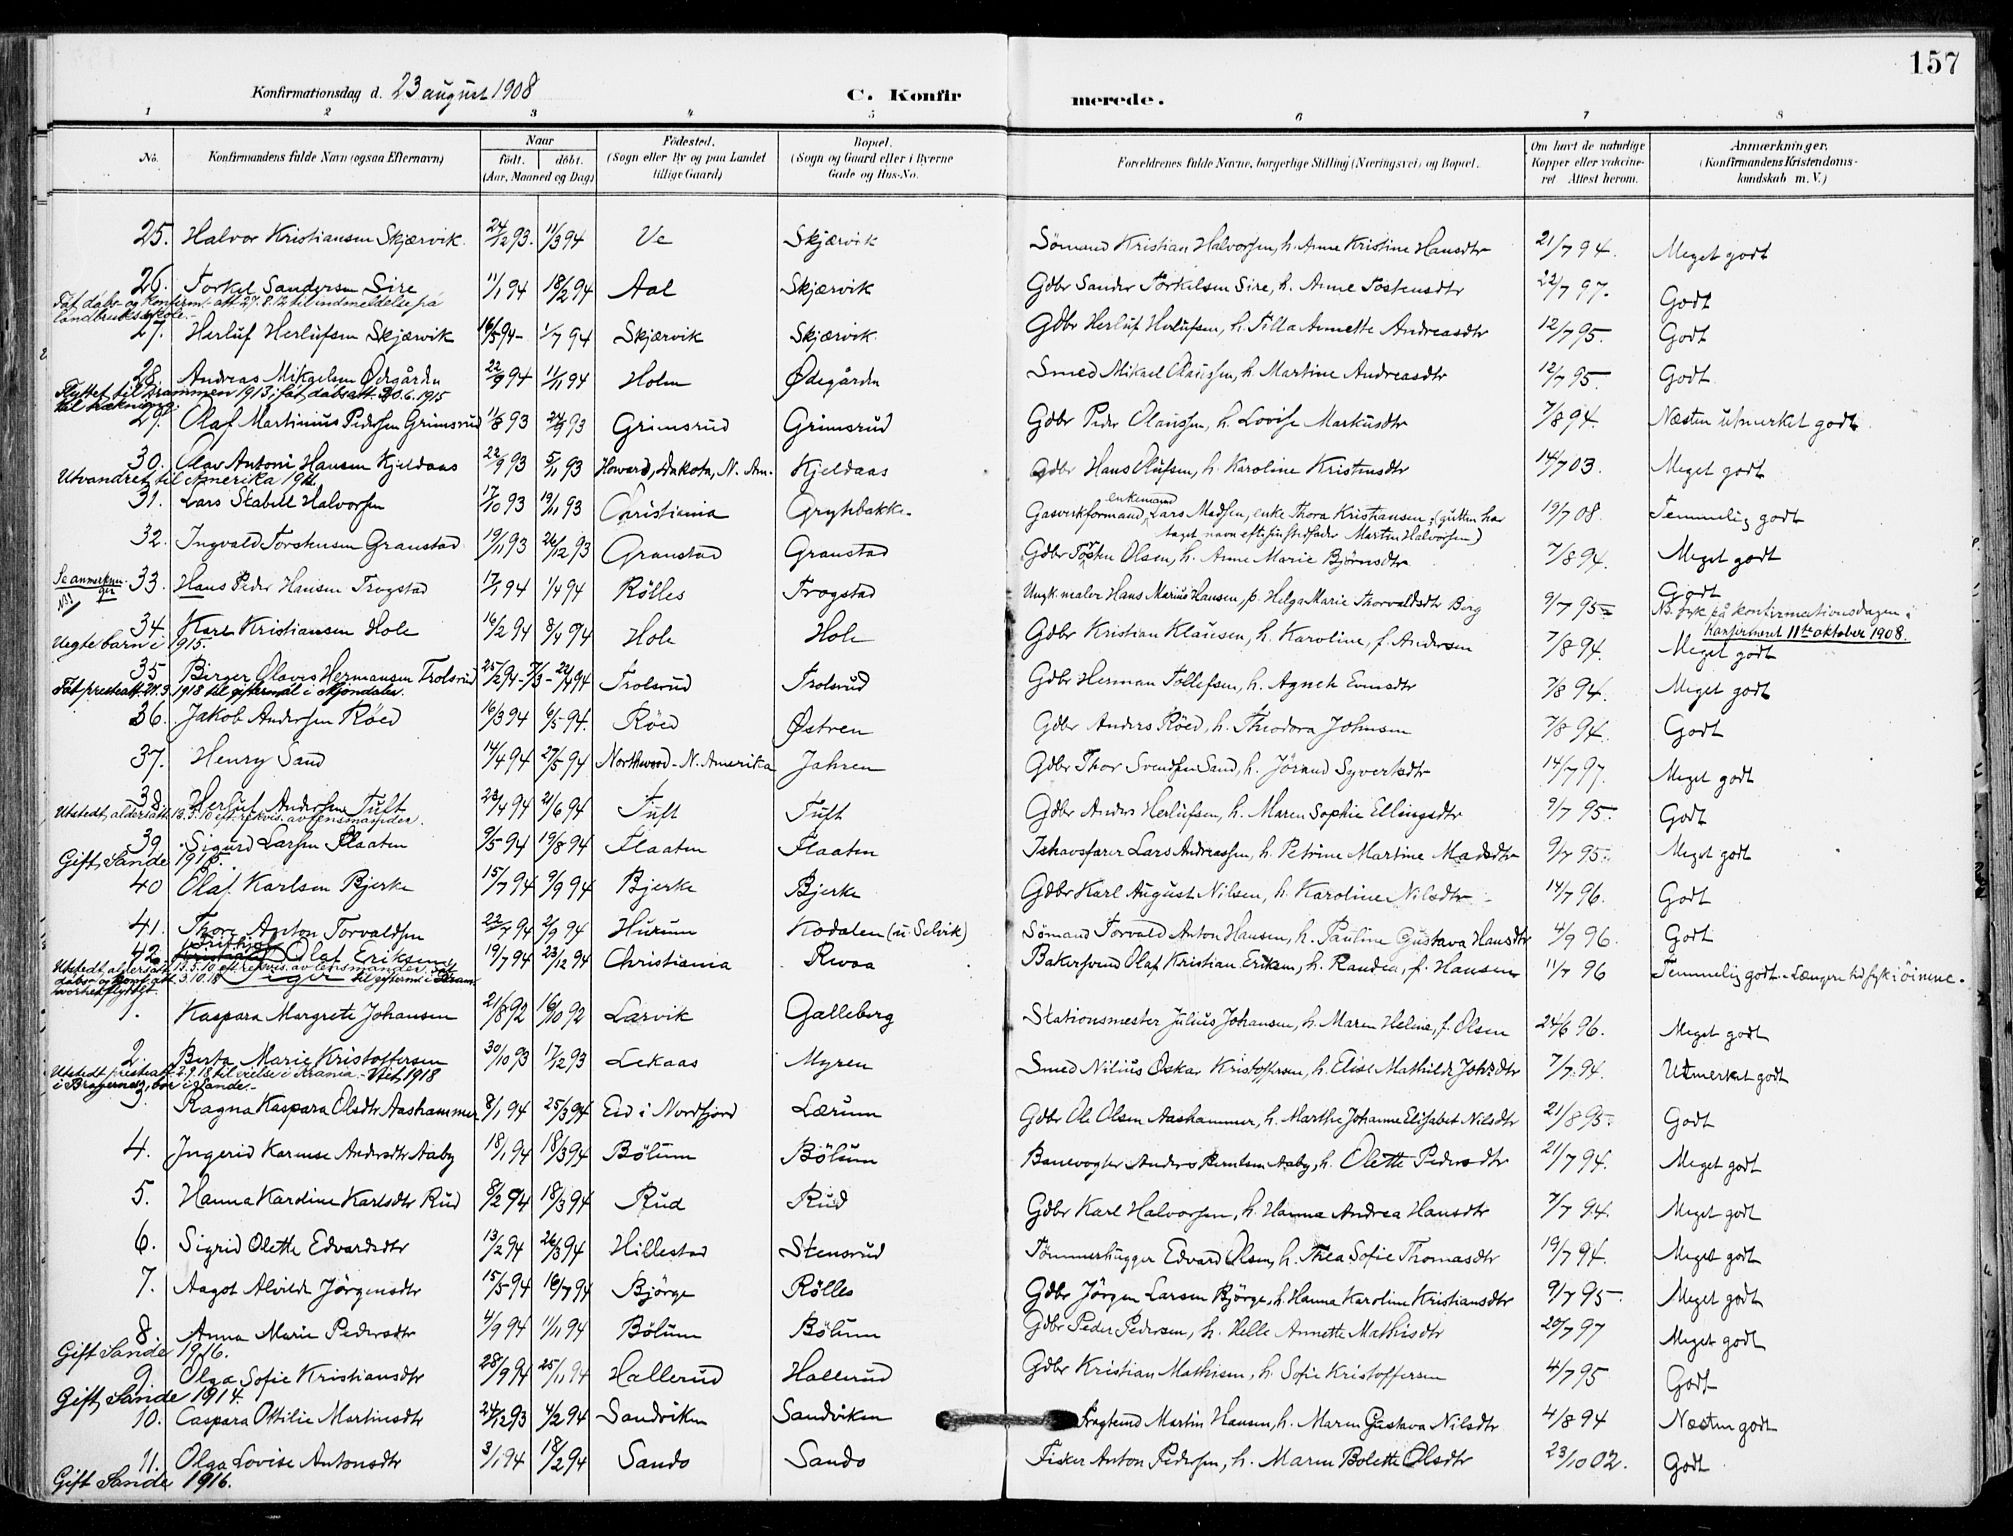 157
Konfirmationsdag d. 23 august 1908 C. Konfirmerede.
1 2 3 4 5 6 7 8
No. Konfirmandens fulde Navn (ogsaa Efternavn) Naar født. døbt. (Aar, Maaned og Dag) Fødested. (Sogn eller By og paa Landet tillige Gaard) Bopæl. (Sogn og Gaard eller i Byerne Gade og Hus-No. Forældrenes fulde Navne, borgerlige Stilling (Næringsvei) og Bopæl. Om havt de naturlige Kopper eller vaccineret Attest herom. Anmærkninger. (Konfirmandens Kristendomskundskab m. V.)
25. Halvor Kristiansen Skjærvik 24/12 93. 11/3 94 Ve Skjærvik Sömand Kristian Halvorsen, h. Anne Kristine Hansdtr 21/7 94. Meget godt
26. Torkel Sandersen Sire 11/1 94 18/2 94 Aal Skjærvik Gdbr Sander Torkelsen Sire, h. Anne Tostensdtr 22/7 97. Godt
Fåt dåbs- og konfirm. att. 27.8.12 til indmeldelse på
landbruksskole.
27. Herluf Herlufsen Skjærvik 16/5 94 1/7 94 Skjærvik Skjærvik Gdbr Herluf Herlufsen, h. Tilla Annette Andreasdtr 12/7 95. Godt
28. Andreas Mikaelsen Ødegården 22/9 94 11/11 94 Holm Ødegården Smed Mikael Olaussen, h. Martine Andreasdtr 12/7 95. Godt
Flyttet til Drammen 1913; fåt dåbsatt. 30.6.1915
til trækning.
29. Olaf Martinius Pedersen Grimsrud 11/8 93 24/9 93 Grimsrud Grimsrud Gdbr Peder Olaussen, h. Lovise Markusdtr 7/8 94. Næsten utmerket godt.
30. Olav Antoni Hansen Kjeldaas 22/9 93 5/11 93 Howard, Dakota, N. Am. Kjeldaas Gdbr Hans Olufsen, h. Karoline Kristensdtr 14/7 03. Meget godt
Utvandret til Amerika 1911.
31. Lars Stabell Halvorsen 17/10 93 19/11 93 Christiania Grytebakke Gasverkformand, enkemand Lars Madsen, enke Thora Kristiansen, (gutten har taget navn efter sin stedfader Martin Halvorsen) 19/7 08. Temmelig godt
32. Ingvald Torstensen Granstad 19/11 93 26/12 93 Granstad Granstad Gdbr Torsten Olsen, h. Anne Marie Björnsdtr 7/8 94. Meget godt
Se anmerkninger NB! 33. Hans Peder Hansen Trogstad 17/1 94 1/4 94 Rölles Trogstad Ungk. maler Hans Marius Hansen, p. Helga Marie Thorvaldsdtr Berg 9/7 95 Godt
NB. syk på konfirmationsdagen; Konfirmert 11te oktober 1908.
34. Karl Kristiansen Hole 16/2 94 8/4 94 Hole Hole Gdbr Kristian Klausen, h. Karoline, f. Andersen 7/8 94. Meget godt
Uegte barn i 1915.
35 Birger Olaves Hermansen Trolsrud 25/2 94 Trolsrud Trolsrud Gdbr Herman Tollefsen, h. Agnete Evensdtr 7/8 94. Meget godt
Fåt presteatt. 21.3.1918 til giftermål i Mjøndalen.
36. Jakob Andersen Röed 16/3 94 6/5 94. Röed Østren Gdbr Anders Röed, h. Theodora Johnsen 7/8 94. Godt
37. Henry Sand 14/4 94 27/5 94 Northwood - N. Amerika Jahren Gdbr Thor Svendsen Sand, h. Jörand Syvertsdtr 14/7 97. Meget godt
38 Herluf Andersen Tuft 23/4 94 21/6 94 Tuft Tuft Gdbr Anders Herlufsen, h. Maren Sophie Ellingsdtr 9/7 95 Godt
Utstedt aldersatt. 13.5.10 eft. rekvis. av lensmanden.
39. Sigurd Larsen Flaaten 9/5 94 19/8 94 Flaaten Flaaten Ishavsfarer Lars Andreassen, h. Petrine Martine Madsdtr 9/7 95 Meget godt
Gift, Sande 1915.
40 Olaf Karlsen Bjerke 15/7 94 9/9 94 Bjerke Bjerke Gdbr Karl August Nilsen, h. Karoline Nilsdtr 14/7 96. Godt
41. Thore Anton Torvaldsen 22/7 94 2/9 94 Hukum Kodalen (u. Selvik) Sömand Torvald Anton Hansen, h. Pauline Gustava Hansdtr 4/9 96. Godt
42. Fritjof Olaf Eriksen 19/7 94 23/12 94 Christiania Revaa Bakersvend Olaf Kristian Eriksen, h. Randea, f. Hansen 11/7 96 Temmelig godt. Længere tid syk i öinene.
Utstedt aldersatt. 13.5.10 eft. rekvis. av lensmanden. Fåt
dåbs- og konf. att. 3.10.18 til giftermål i Dram
Piger
1. Kaspara Margrete Johansen 21/8 92 16/10 92 Larvik Galleberg Stationsmester Julius Johansen, h. Maren Heline, f. Olsen 24/6 96. Meget godt
2. Berta Marie Kristoffersen 30/10 93 17/12 93 Lekaas Myren Smed Nilius Oskar Kristoffersen, h. Elise Mathilde Johsdtr 7/7 94. Utmerket godt
Utstedt presteatt. 2.9.18 til vielse i Krania. - Viet 1918
i Bragernes, bor i Sande.
3. Ragna Kaspara Olsdtr Aashammer 8/1 94 25/3 94 Eid i Nordfjord Lærum Gdbr Ole Olsen Aashammer, h. Marthe Johanne Elisabet Nilsdtr 21/8 95 Godt
4. Ingerid Karense Andersdtr Aaby 18/1 94 18/3 94 Bölum Bölum Banevogter Anders Berntsen Aaby, h. Olette Pedersdtr 21/7 94. Meget godt
5. Hanna Kardine Karlsdtr Rud 8/2 94 18/3 94 Rud Rud Gdbr Karl Halvorsen, h. Hanna Andrea Hansdtr 7/7 94. Meget godt
6. Sigrid Olette Edvardsdtr 13/2 94 26/3 94 Hillestad Stensrud Tömmerhugger Edvard Olsen, h. Thea Sofie Thomasdtr 19/7 94. Meget godt
7. Aagot Alvilde Jörgensdtr 15/5 94 16/7 94 Björge Rölles Gdbr Jörgen Larsen Björge, h. Hanna Karoline Kristiansdtr 9/7 95. Meget godt
8. Anna Marie Pedersdtr 4/9 94 11/11 94 Bölum Bölum Gdbr Peder Pedersen, h. Helle Annette Mathisdtr 20/7 97 Meget godt
Gift Sande 1916.
9. Olga Sofie Kristiansdtr 28/9 94 25/11 94 Hallerud Hallerud Gdbr Kristian Mathisen, h. Sofie Kristoffersen 4/7 95 Godt
Gift Sande 1914.
10. Caspara Ottilie Martinsdtr 24/12 93 4/2 94 Sandviken Sandviken Fragtemd Martin Hansen, h. Maren Gustava Nilsdtr 4/8 94 Næsten godt
11. Olga Lovise Antonsdtr 3/1 94 18/2 94 Sando Sando Fisker Anton Pedersen, h. Maren Bolette Olsdtr 23/10 02. Godt
Gift Sande 1916.